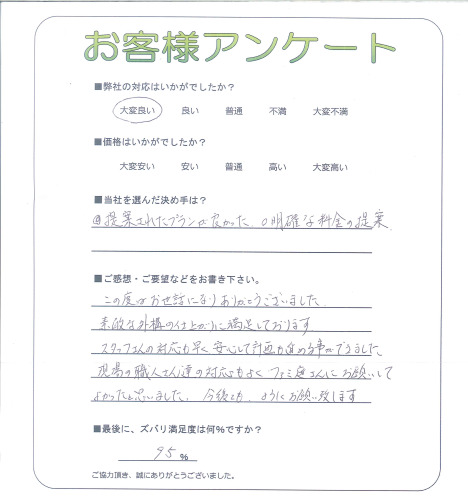 お客様アンケート
■弊社の対応はいかがでしたか?
大変良い 良い 普通 不満 大変不満
■価格はいかがでしたか?
大変安い 安い 普通 高い 大変高い
■当社を選んだ決め手は?
◎提案されたプランが良かった ○明確な料金の提案
■ご感想・ご要望などをお書き下さい。
この度はお世話になりありがとうございました
素敵な外構の仕上がりに満足しております
スタッフさんの対応も早く安心して計画も進める事ができました
現場の職人さん達の対応もよく ファミ庭さんにお願いして
よかったと思いました。今後とも、よろしくお願い致します
■最後に、ズバリ満足度は何%ですか?
95 %
ご協力頂き、誠にありがとうございました。